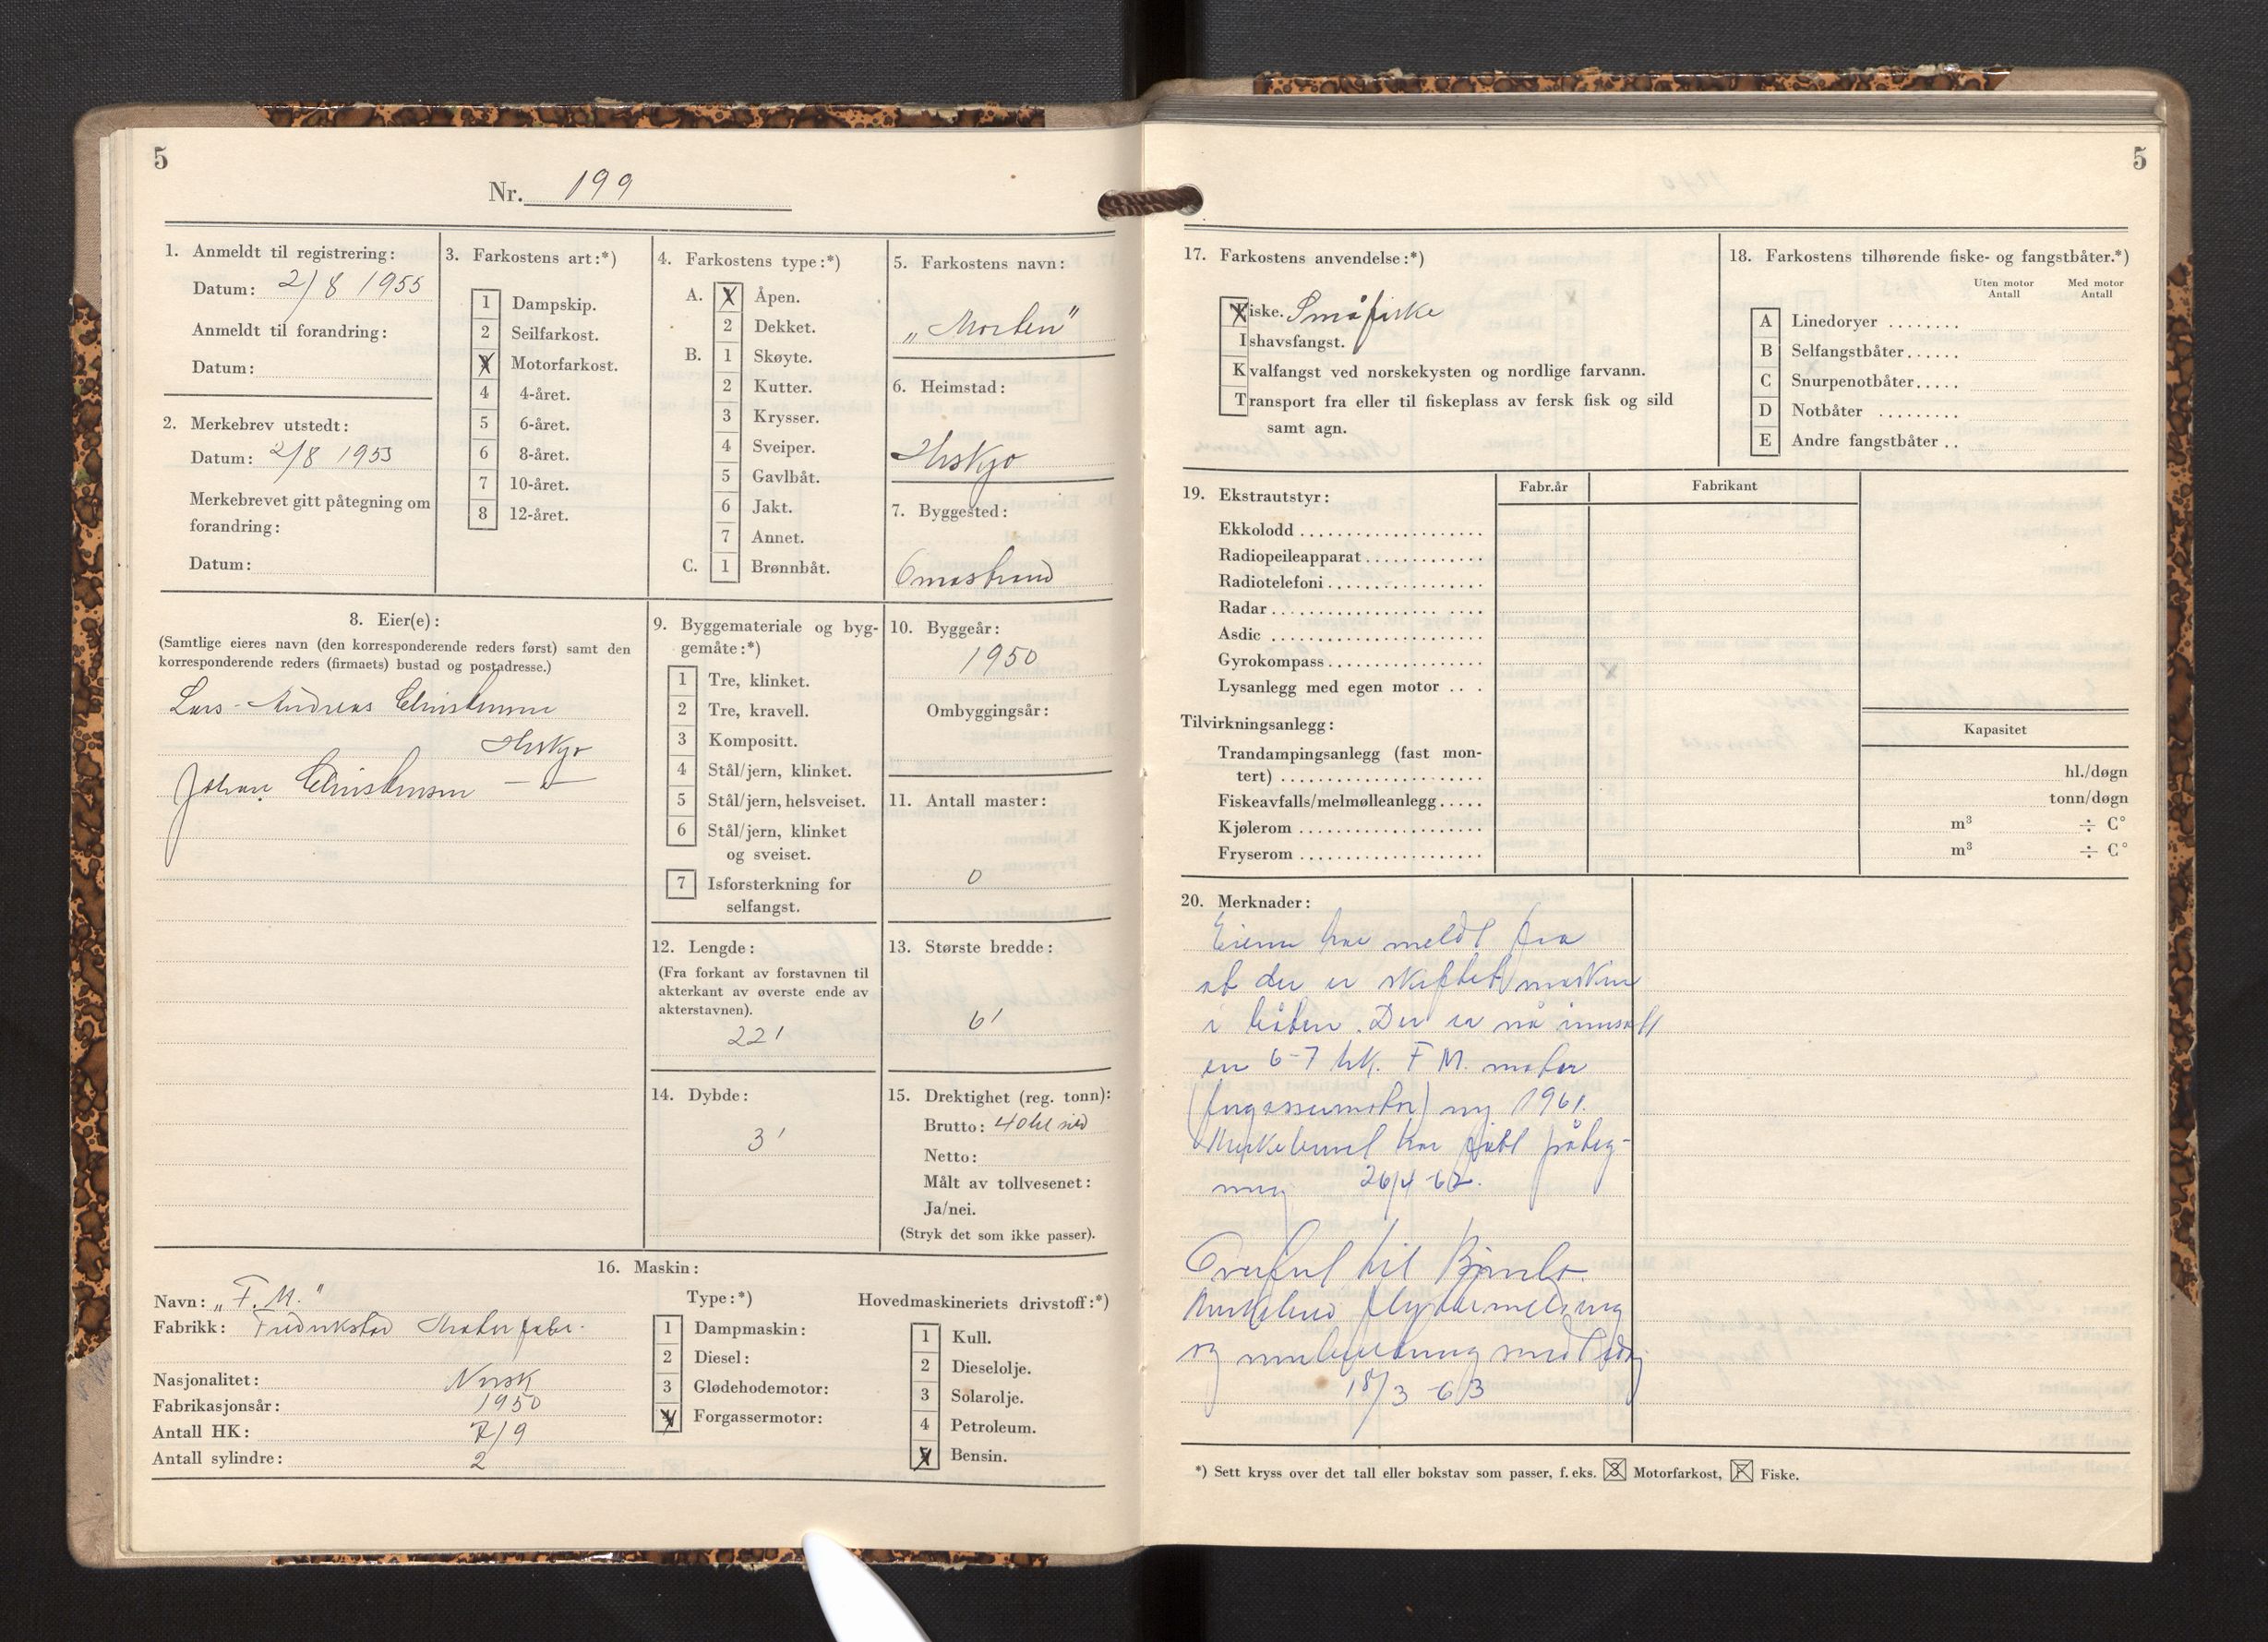 5
Nr. 199
1. Anmeldt til registrering:
Datum: 2/8 1955
Anmeldt til forandring:
Datum:
2. Merkebrev utstedt:
Datum: 2/8 1955
Merkebrevet gitt påtegning om
forandring:
Datum:
3. Farkostens art:*)
1 Dampskip.
2 Seilfarkost.
X Motorfarkost.
4 4-året.
5 6-året.
6 8-året.
7 10-året.
8 12-året.
4. Farkostens type:*)
A. X Åpen.
2 Dekket.
B. 1 Skøyte.
2 Kutter.
3 Krysser.
4 Sveiper.
5 Gavlbåt.
6 Jakt.
7 Annet.
C. 1 Brønnbåt.
5. Farkostens navn:
„Morten"
6. Heimstad:
7. Byggested:
Omastrand
8. Eier(e):
(Samtlige eieres navn (den korresponderende reders først) samt den
korresponderende reders (firmaets) bustad og postadresse.)
Lars-Andreas Christensen
Johan Christensen — " —
9. Byggemateriale og byg-
gemåte:*)
1 Tre, klinket.
2 Tre, kravell.
3 Kompositt.
4 Stål/jern, klinket.
5 Stål/jern, helsveiset.
6 Stål/jern, klinket
og sveiset.
7 Isforsterkning for
selfangst.
10. Byggeår:
1950
Ombyggingsår:
11. Antall master:
0
12. Lengde:
(Fra forkant av forstavnen til
akterkant av øverste ende av
akterstavnen).
22'
13. Største bredde:
6'
14. Dybde:
3'
15. Drektighet (reg. tonn):
Brutto: 40 hl sild
Netto:
Målt av tollvesenet:
Ja/nei.
(Stryk det som ikke passer).
16. Maskin:
Navn: „F.M."
Fabrikk: Fredrikstad Motorfabr.
Nasjonalitet: Norsk
Fabrikasjonsår: 1950
Antall HK: 7/9
Antall sylindre: 2
Type:*)
1 Dampmaskin:
2 Diesel:
3 Glødehodemotor:
X Forgassermotor:
Hovedmaskineriets drivstoff:*)
1 Kull.
2 Dieselolje.
3 Solarolje.
4 Petroleum.
X Bensin.
5
17. Farkostens anvendelse:*)
Fiske. Småfiske
Ishavsfangst.
Kvalfangst ved norskekysten og nordlige farvann.
Transport fra eller til fiskeplass av fersk fisk og sild
samt agn.
18. Farkostens tilhørende fiske- og fangstbåter.*)
Uten motor Antall
Med motor Antall
A Linedoryer ........
B Selfangstbåter......
C Snurpenotbåter.....
D Notbåter .........
E Andre fangstbåter ..
19. Ekstrautstyr:
Fabr.år
Fabrikant
Ekkolodd ....................
Radiopeileapparat ............
Radiotelefoni ................
Radar ......................
Asdic ......................
Gyrokompass ................
Lysanlegg med egen motor ...
Tilvirkningsanlegg:
Kapasitet
Trandampingsanlegg (fast mon-
tert) ...................... hl./døgn
Fiskeavfalls/melmølleanlegg ..... tonn/døgn
Kjølerom .................... m³ ÷ C°
Fryserom .................... m³ ÷ C°
20. Merknader:
Eieren har meldt fra
at der er skiftet maskin
i båten. Der er nå innsatt
en 6-7 hk. F.M. motor
(forgassermotor) ny 1961.
Merkebrevet har fått påteg-
ning 26/4-62.
Overført til Bømlo.
Merkebrev flyttemelding
og innberetning
18/3-63
*) Sett kryss over det tall eller bokstav som passer, f. eks. 3 Motorfarkost, F Fiske.